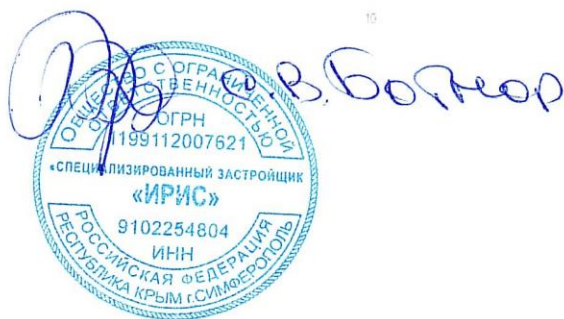 10
О.В.Ботнор
ОБЩЕСТВО С ОГРАНИЧЕННОЙ
ОТВЕТСТВЕННОСТЬЮ
ОГРН
1199112007621
«СПЕЦИАЛИЗИРОВАННЫЙ ЗАСТРОЙЩИК
«ИРИС»
9102254804
ИНН
РОССИЙСКАЯ ФЕДЕРАЦИЯ
РЕСПУБЛИКА КРЫМ г.СИМФЕРОПОЛЬ